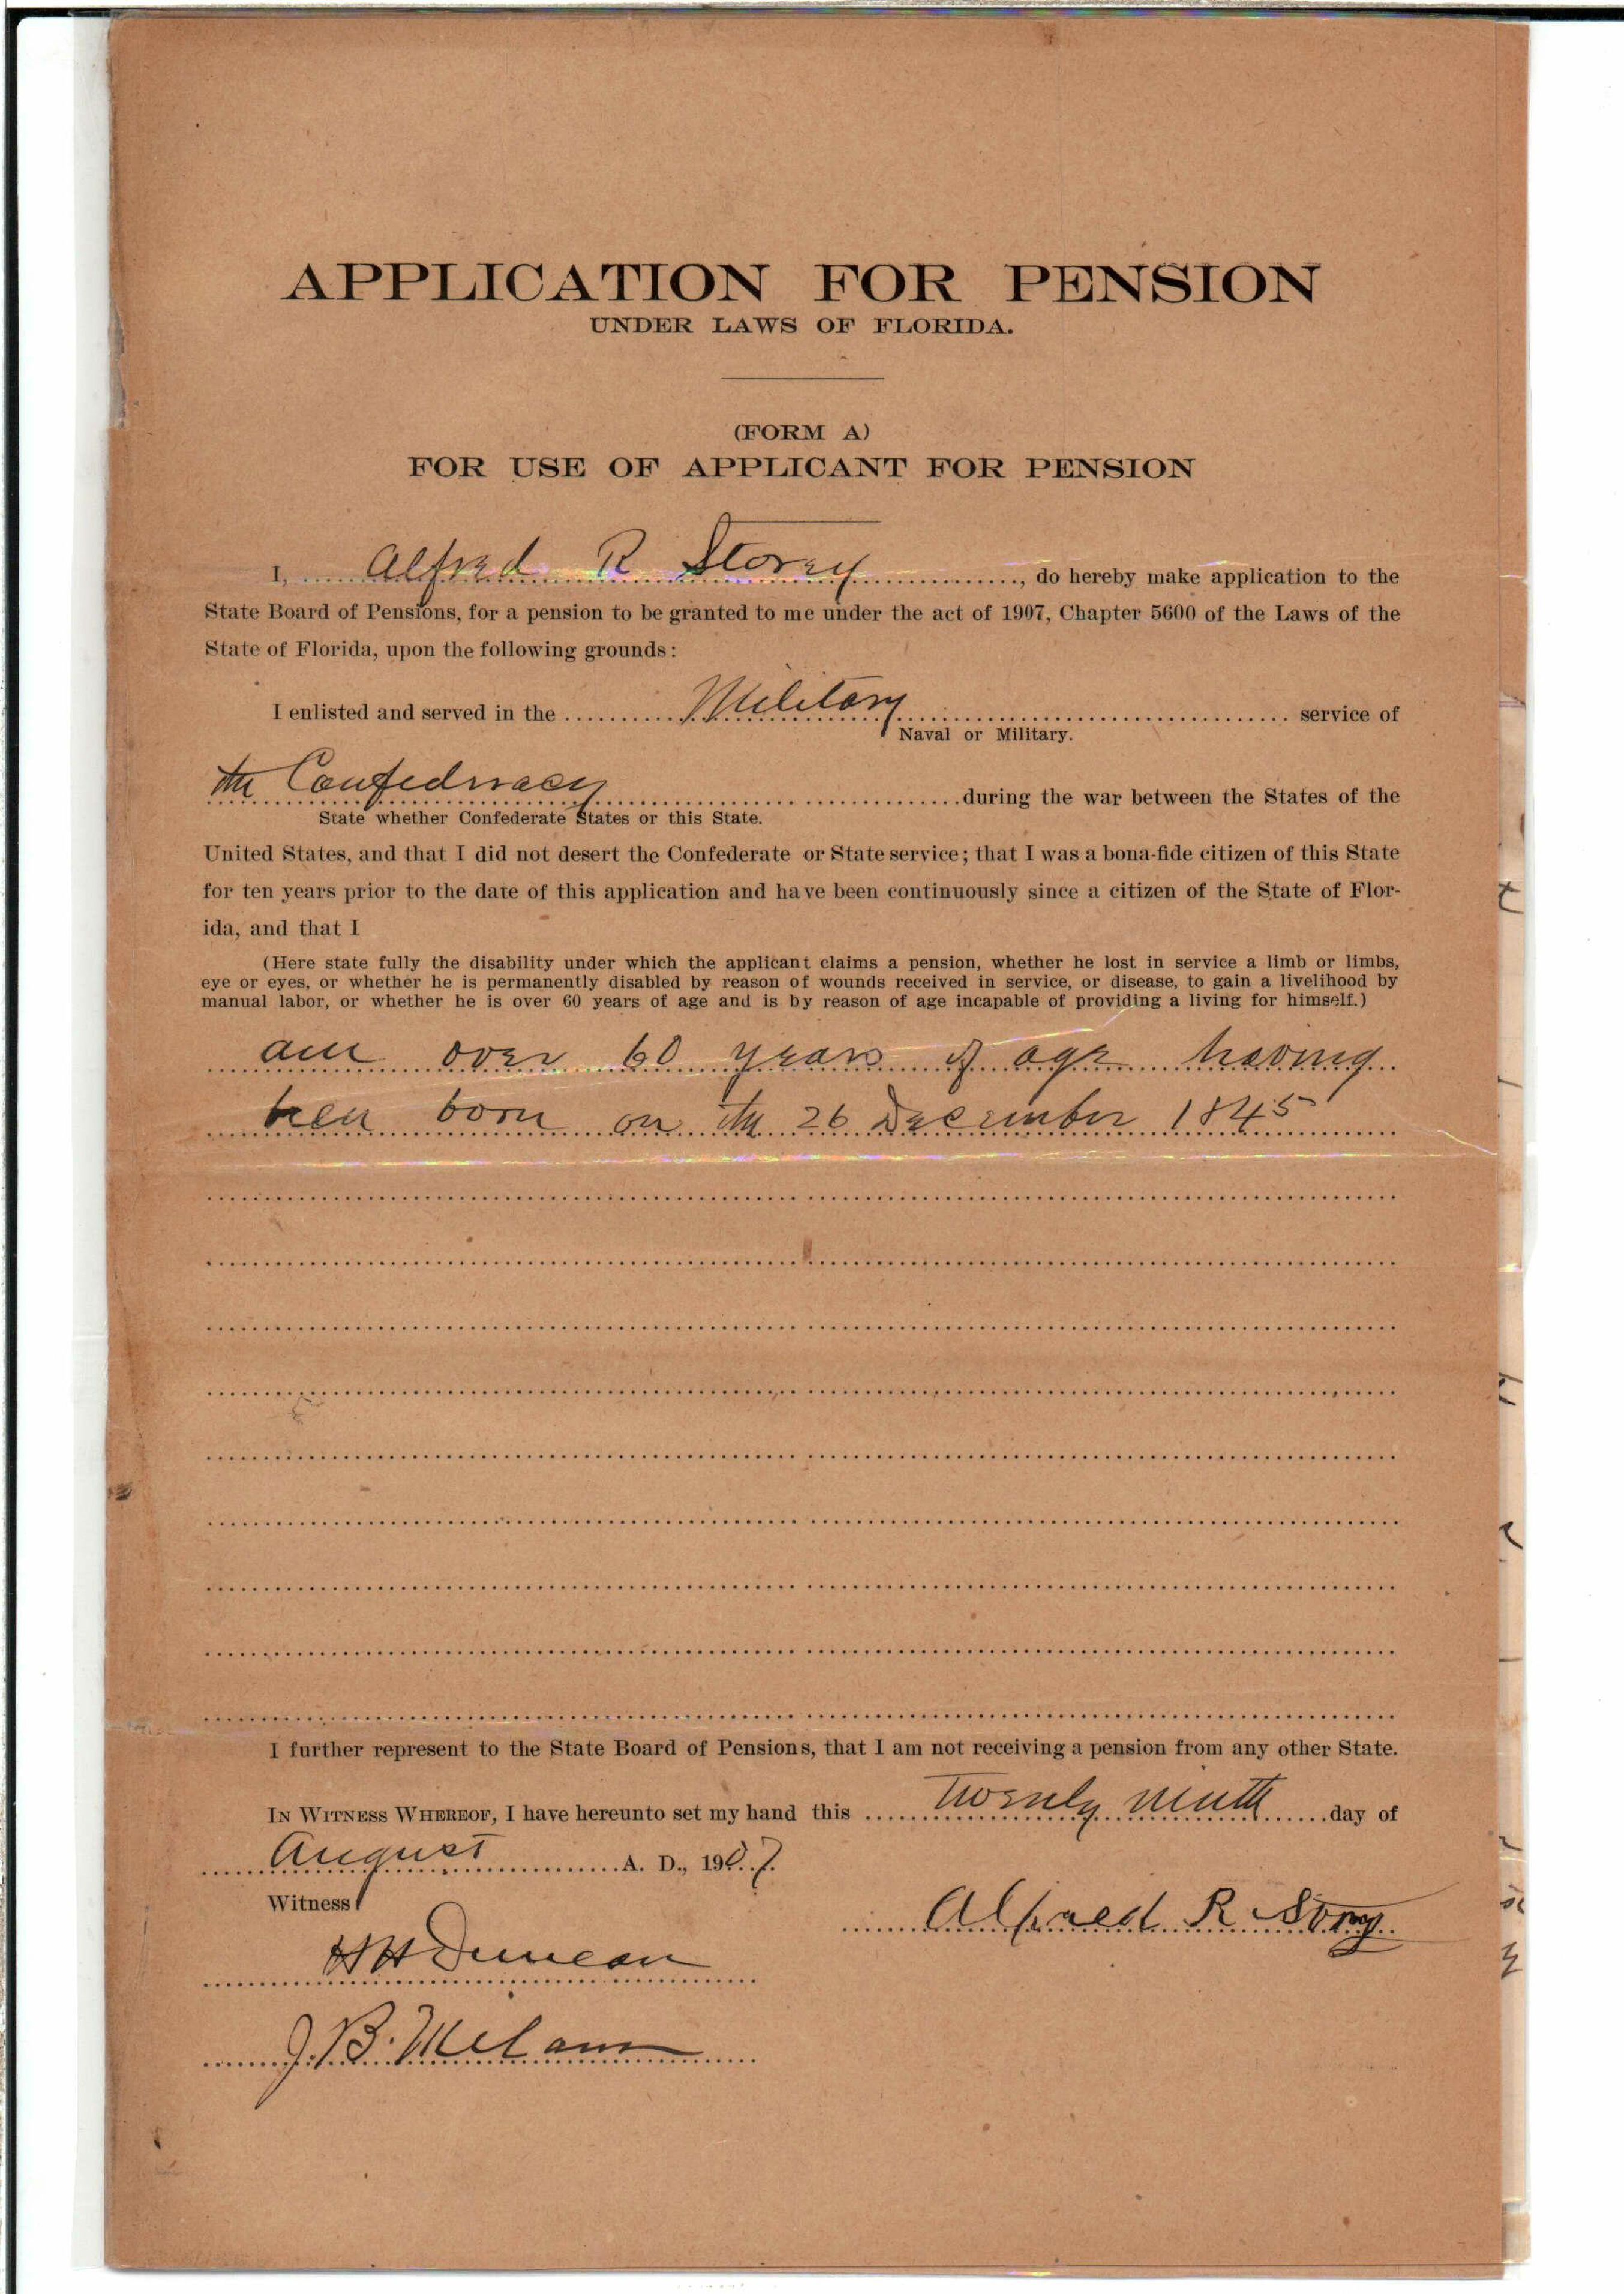 APPLICATION FOR PENSION
UNDER LAWS OF FLORIDA.
(FORM A)
FOR USE OF APPLICANT FOR PENSION
I, Alfred R Storey, do hereby make application to the
State Board of Pensions, for a pension to be granted to me under the act of 1907, Chapter 5600 of the Laws of the
State of Florida, upon the following grounds:
I enlisted and served in the Military service of
Naval or Military.
the Confederacy during the war between the States of the
State whether Confederate States or this State.
United States, and that I did not desert the Confederate or State service; that I was a bona-fide citizen of this State
for ten years prior to the date of this application and have been continuously since a citizen of the State of Flor-
ida, and that I
(Here state fully the disability under which the applicant claims a pension, whether he lost in service a limb or limbs,
eye or eyes, or whether he is permanently disabled by reason of wounds received in service, or disease, to gain a livelihood by
manual labor, or whether he is over 60 years of age and is by reason of age incapable of providing a living for himself.)
am over 60 years of age having
been born on the 26 December 1845
I further represent to the State Board of Pensions, that I am not receiving a pension from any other State.
IN WITNESS WHEREOF, I have hereunto set my hand this twenty ninth day of
August A. D., 1907.
Witness
Alfred R Storey
H H Duncan
J. B. Milam